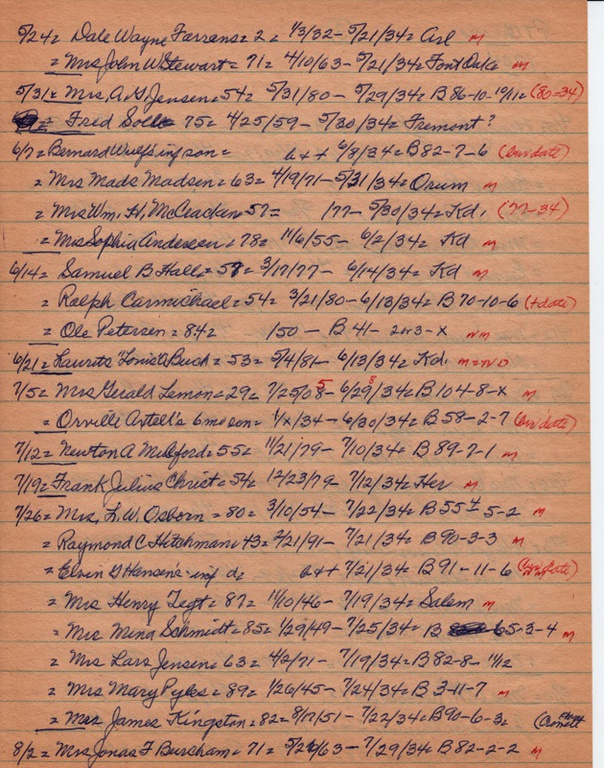 5/24 = Dale Wayne Farrens = 2 = 1/3/32 - 5/21/34 = Arl m
= Mrs John W Stewart = 71 = 4/10/63 - 5/21/34 = Font Dak = m
5/31 = Mrs, A. G. Jensen = 54 = 5/31/80 - 5/29/34 = B 86-10- (80=34)
= Fred 75 = 4/25/59 - 5/30/34 = Fremont?
6/7 = Bernard Wulf's inf son = b + + 6/8/34 = B 82-7-6 (brv date)
= Mrs Mads Madsen = 63 = 4/19/71 - 5/31/34 = Orum m
= Mrs Wm, H, McCracken 57 = /77 - 5/30/34 = Kd, (77-34)
= Mrs Sophia Andersen = 78 = 11/6/55 - 6/2/34 = Kd m
6/14 = Samuel B Hall = 57 = 3/17/77 - 6/14/34 = Kd m
= Ralph Carmichael = 54 = 3/21/80 - 6/13/34 = B 70-10-6 (+date)
= Ole Petersen = 84 = /50 - B 41- 2 or 3-x nm
6/21 = Laurits "Louis" A Buch = 53 = 5/4/81 - 6/13/34 = Kd, m = no
7/5 = Mrs Gerald Lemon = 29 = 7/25/05 - 6/29/34 = B 104-8-x m
= Orville Astell's 6 mo son = 1/x/34 - 6/30/34 = B 58-2-7 (brv date)
7/12 = Newton A Mulford = 55 = 11/21/79 - 7/10/34 = B 89-7-1 m
7/19 = Frank Julius Christ = 54 = 12/23/79 - 7/12/34 = Her m
7/26 = Mrs, L. W. Osborn = 80 = 3/10/54 - 7/22/34 = B 55 ± 5-2 m
= Raymond C Hitchman = 43 = 2/21/91 - 7/21/34 = B 90-3-3 m
= Elvin G Hansen's - inf d = b + + 7/21/34 = B 91-11-6 (brv date)
= Mrs Henry Tegt = 87 = 11/10/46 - 7/19/34 = Salem m
= Mrs Mena Schmidt = 85 = 1/29/49 - 7/25/34 = B 65-3-4 m
= Mrs Lars Jensen = 63 = 4/2/71 - 7/19/34 = B 82-8- 11/12
= Mrs Mary Pyles = 89 = 1/26/45 - 7/24/34 = B 3-11-7 m
= Mrs James Kingston = 82 = 8/17/51 - 7/22/34 = B 90-6-3 =
8/2 = Mrs Jonas F Burcham = 71 = 5/26/63 - 7/29/34 = B 82-2-2 m